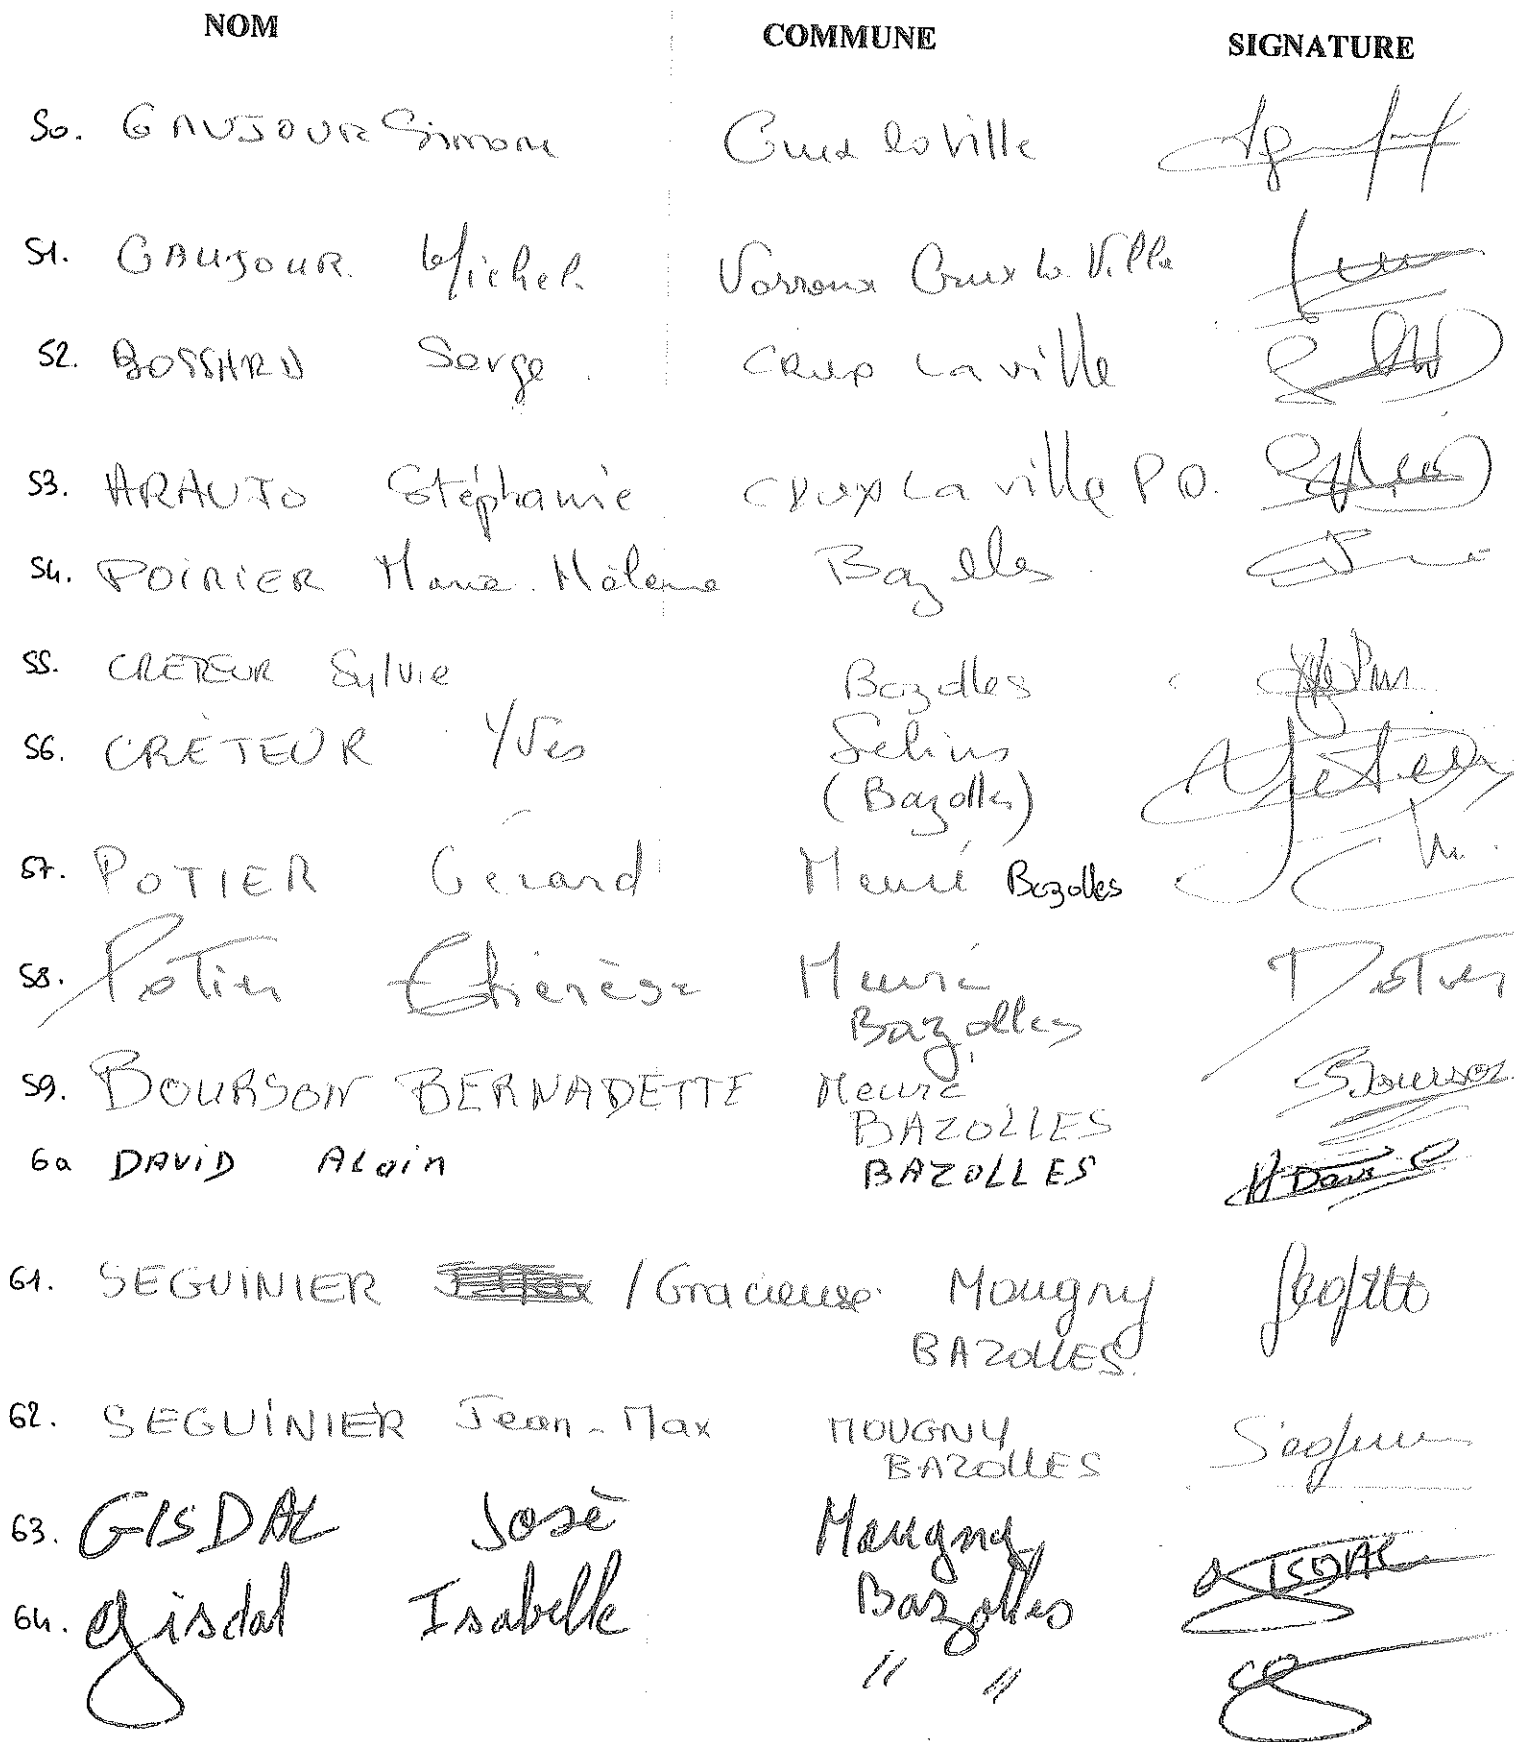 NOM COMMUNE SIGNATURE
50. GAUJOUR Simone Crux la Ville
51. GAUJOUR Michel Crux la Ville
52. BOSSARD Serge CRUX La ville
53. ARAUJO Stéphanie CRUX La ville P.O.
54. POIRIER Marie-Hélène Bazolles
55. CRETEUR Sylvie Bazolles
56. CRÉTEUR Yves
(Bazolles)
57. POTIER Gérard Meuré Bazolles
58. Potier Thérèse Meuré Potier
Bazolles
59. BOURSON BERNADETTE Meuré Bourson
BAZOLLES
60 DAVID Alain BAZOLLES A David
61. SEGUINIER / Gracieuse Mougny
BAZOLLES
62. SEGUINIER Jean-Max MOUGNY
BAZOLLES
63. GISDAL José Mougny GISDAL
64. gisdal Isabelle Bazolles
" "